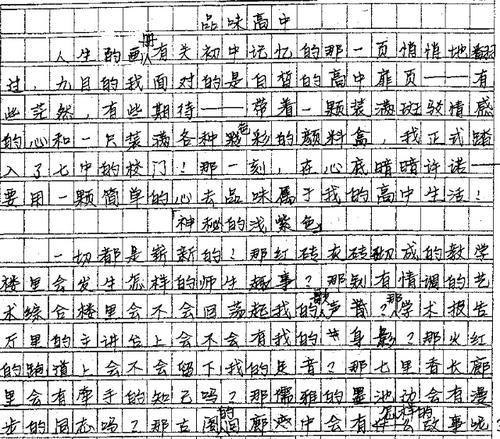 品味高中
人生的画册有关初中记忆的那一页悄悄地翻
过，九月的我面对的是自皙的高中扉页——有
些茫然，有些期待——带着一颗装满斑驳情感
的心和一只装满各种色彩的颜料盒，我正式踏
入了七中的校门！那一刻，在心底暗暗许诺——
要用一颗简单的心去品味属于我的高中生活！
「神秘的浅紫色」
一切都是崭新的！那红砖灰砖砌成的教学
楼里会发生怎样的师生趣事？那别有情调的艺
术综合楼里会不会回荡起我的歌声？那学术报告
厅里的主讲台上会不会有我的身影？那火红
的跑道上会不会留下我的足音？那七里香长廊
里会有牵手的知己吗？那儒雅的墨池边会有漫
步的同志吗？那古阁的回廊中会有怎样的故事呢